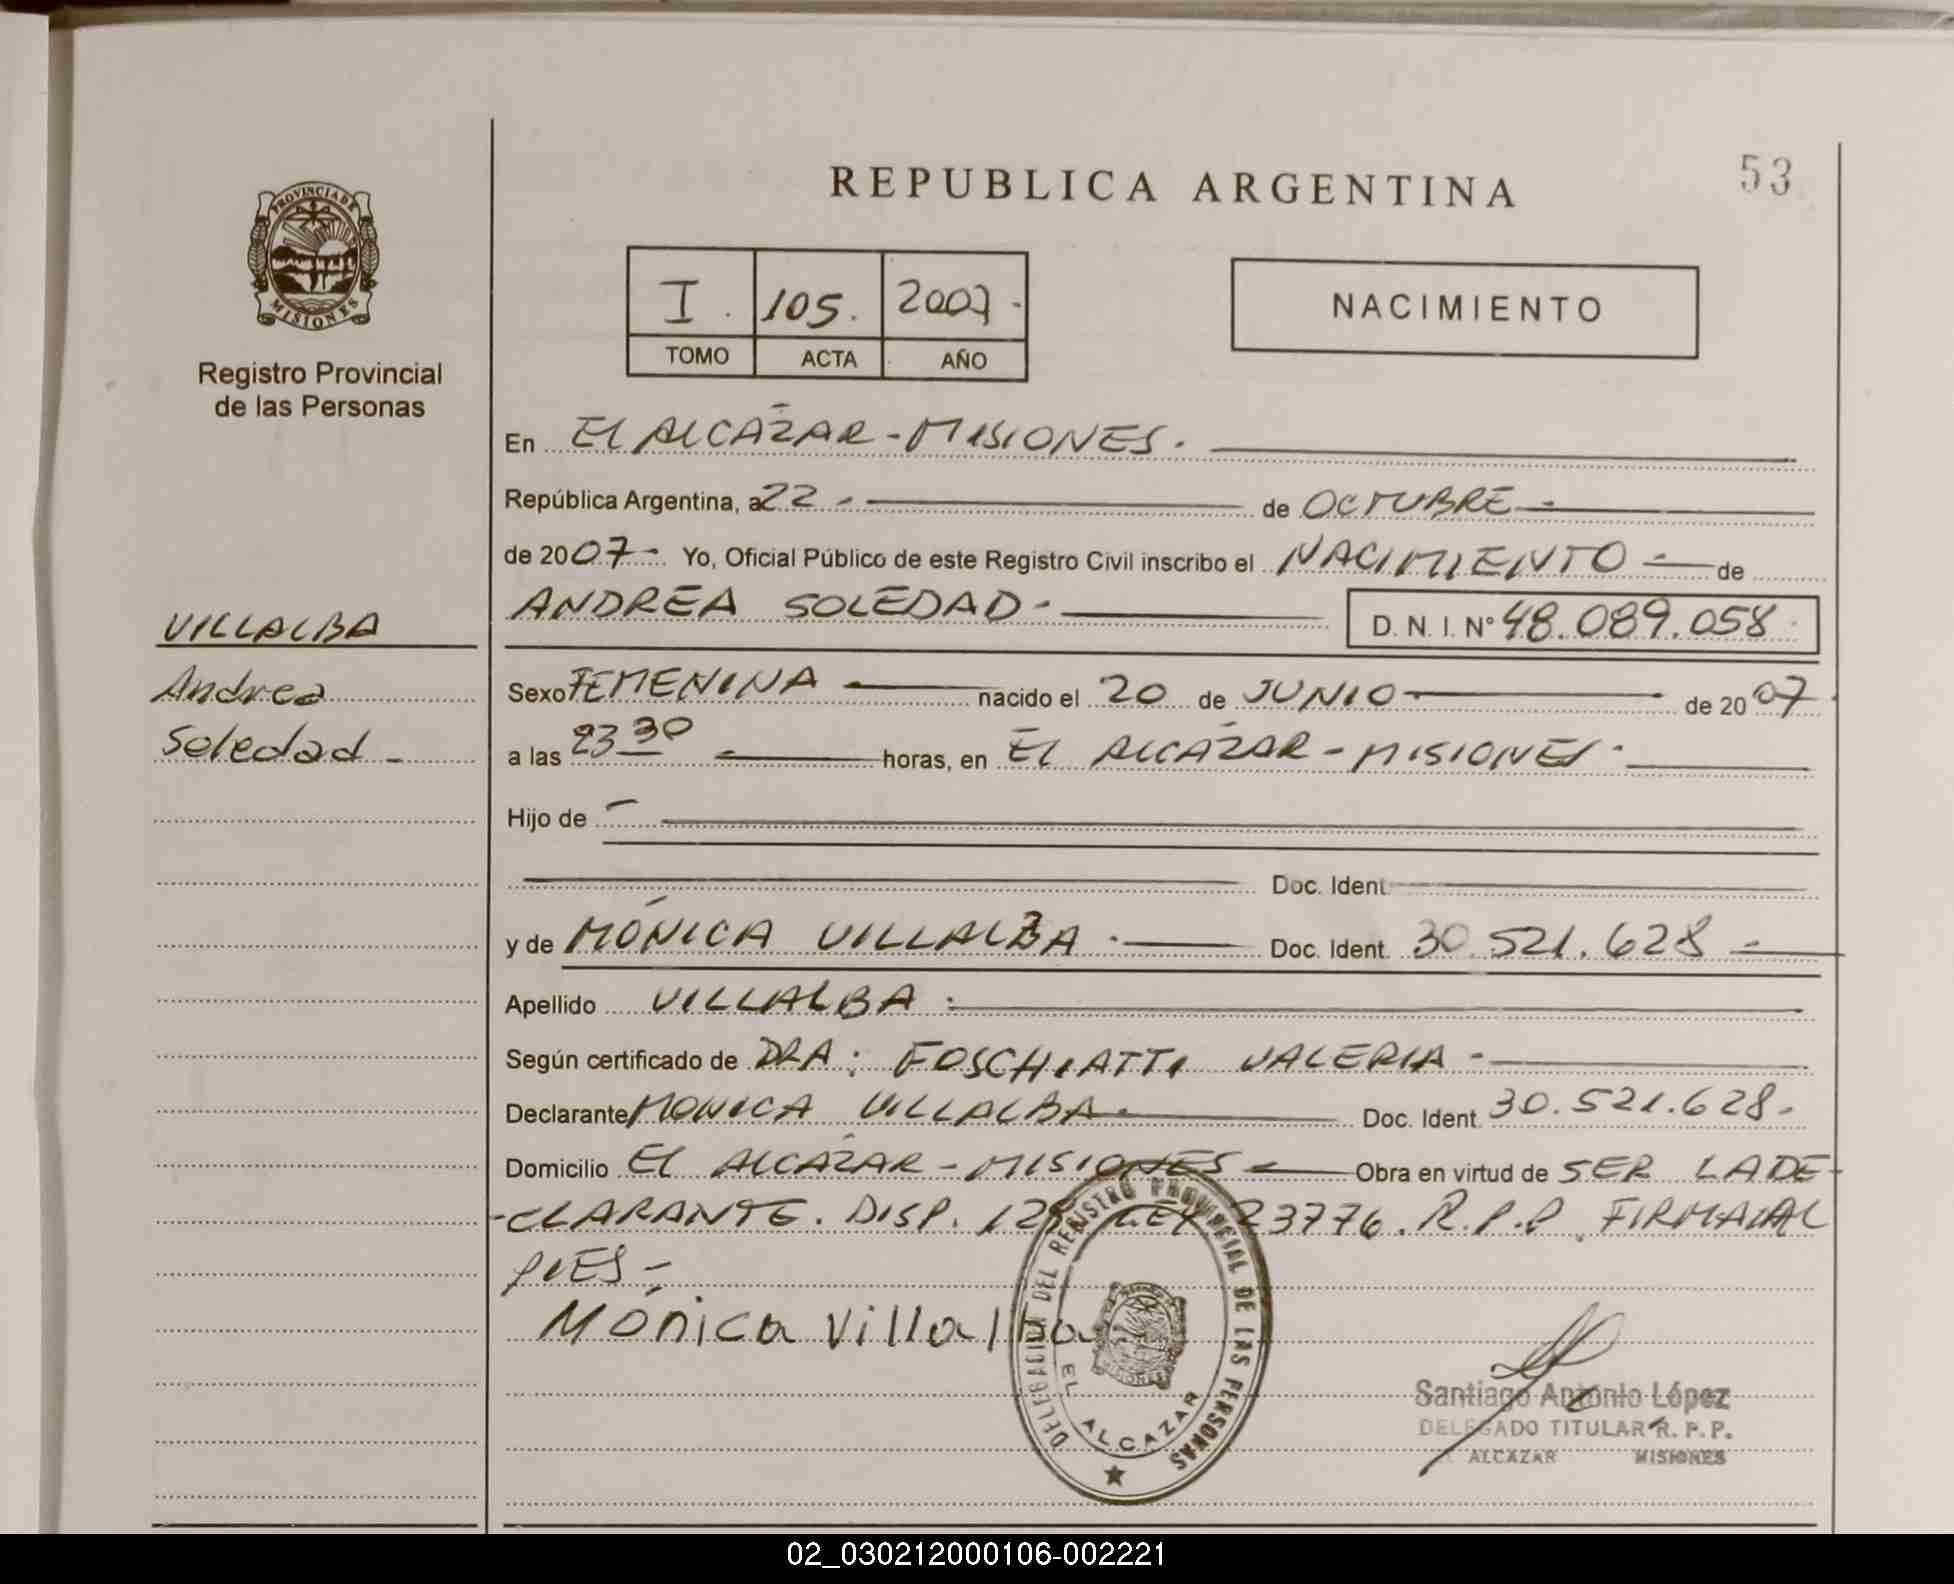 REPUBLICA ARGENTINA
53
PROVINCIA DE
MISIONES
Registro Provincial
de las Personas
I. 105. 2007.
TOMO ACTA AÑO
NACIMIENTO
En EL ALCÁZAR - MISIONES.
República Argentina, a 22 - de OCTUBRE -
de 2007 - Yo, Oficial Público de este Registro Civil inscribo el NACIMIENTO - de
ANDREA SOLEDAD - D. N. I. N° 48.089.058
VILLALBA
Andrea
Soledad -
Sexo FEMENINA nacido el 20 de JUNIO de 2007
a las 23 30 horas, en EL ALCÁZAR - MISIONES.
Hijo de -
Doc. Ident.
y de MÓNICA VILLALBA. Doc. Ident. 30.521.628 -
Apellido VILLALBA.
Según certificado de DRA: FOSCHIATTI VALERIA -
Declarante MONICA VILLALBA. Doc. Ident. 30.521.628.
Domicilio EL ALCÁZAR - MISIONES - Obra en virtud de SER LA DE-
-CLARANTE. DISP. 23776. R.P.P. FIRMA AL
PIES -
Mónica Villalba
DELEGACION DEL REGISTRO PROVINCIAL DE LAS PERSONAS
EL ALCAZAR
MISIONES
Santiago Antonio López
DELEGADO TITULAR R. P. P.
ALCAZAR MISIONES
02_030212000106-002221